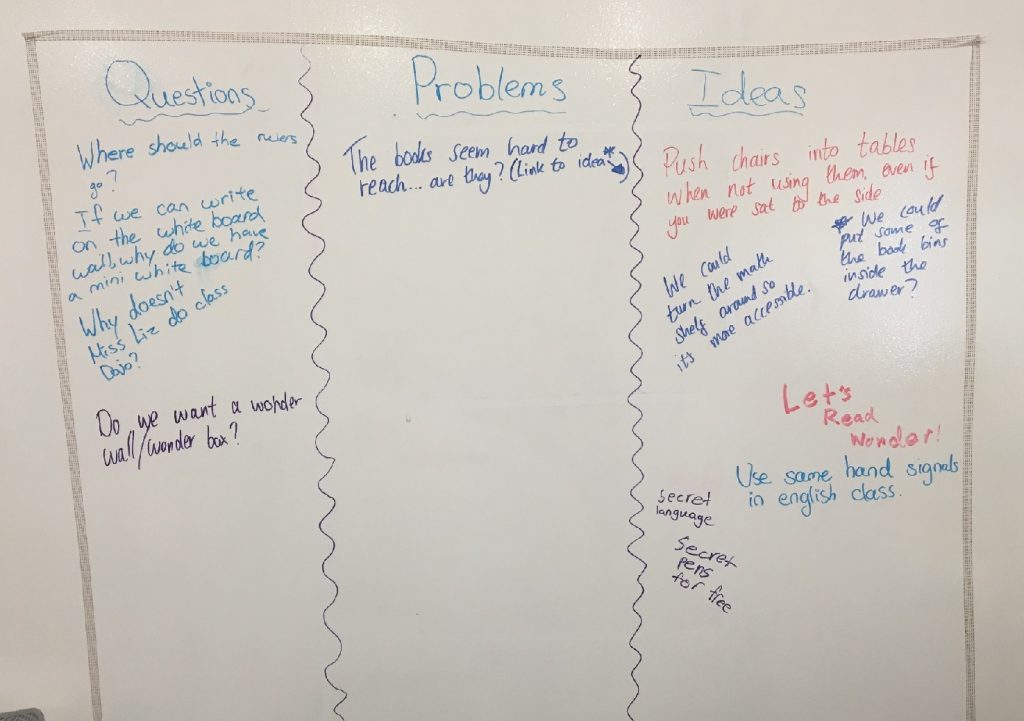 Questions
Where should the rulers
go?
If we can write
on the white board
wall, why do we have
a mini white board?
Why doesn't
Miss Liz do class
Dojo?
Do we want a wonder
wall/wonder box?
Problems
The books seem hard to
reach... are they? (Link to idea *)
Ideas
Push chairs into tables
when not using them, even if
you were sat to the side
* We could
put some of
the book bins
inside the
drawer?
We could
turn the math
shelf around so
it's more accessible.
Let's
Read
Wonder!
Use same hand signals
in english class.
Secret
language
Secret
pens
for free